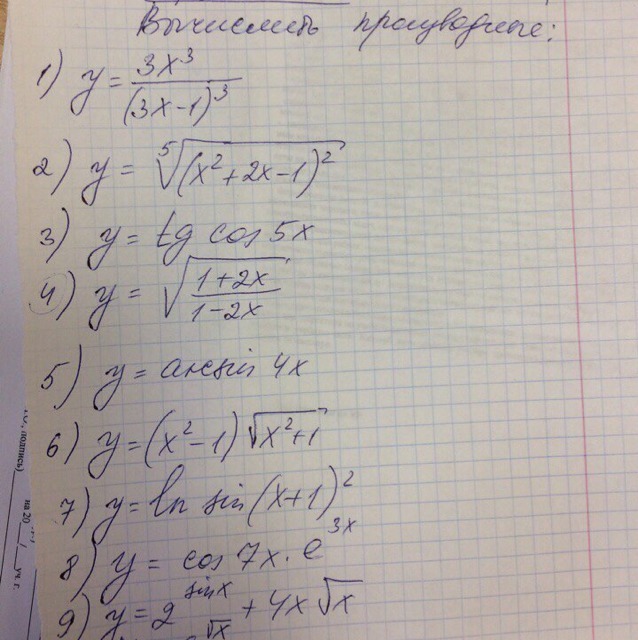 Вычислить производные:
1) y = 3x³/(3x-1)³
2) y = ⁵√(x²+2x-1)²
3) y = tg cos 5x
4) y = √((1+2x)/(1-2x))
5) y = arcsin 4x
6) y = (x²-1)√(x²+1)
7) y = ln sin (x+1)²
8) y = cos 7x · e^(3x)
9) y = 2^(sin x) + 4x√x
√x
подпись)
на 20
/ уч. г.